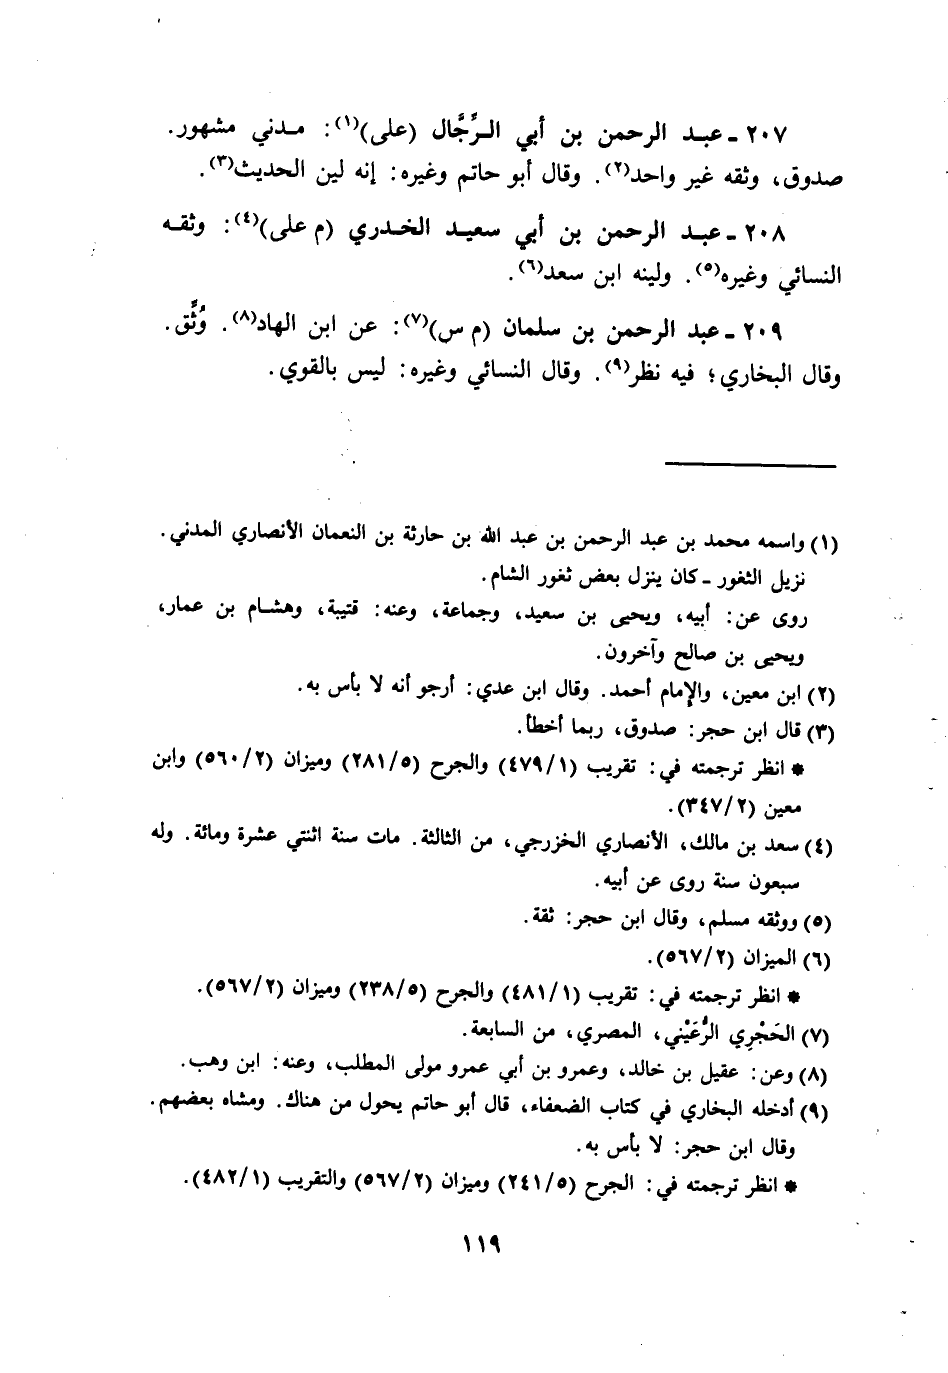 ٢٠٧ ـ عبـد الرحمن بن أبي الـرَّجَّال (على)(١): مـدني مشهور.
صدوق، وثقه غير واحد(٢). وقال أبو حاتم وغيره: إنه لين الحديث(٣).
٢٠٨ ـ عبـد الرحمن بن أبي سعيـد الخـدري (م على)(٤): وثقـه
النسائي وغيره(٥). ولينه ابن سعد(٦).
٢٠٩ ـ عبد الرحمن بن سلمان (م س)(٧): عن ابن الهاد(٨). وُثِّق.
وقال البخاري؛ فيه نظر(٩). وقال النسائي وغيره: ليس بالقوي.
(١) واسمه محمد بن عبد الرحمن بن عبد الله بن حارثة بن النعمان الأنصاري المدني.
نزيل الثغور ـ كان ينزل بعض ثغور الشام.
روى عن: أبيه، ويحيى بن سعيد، وجماعة، وعنه: قتيبة، وهشام بن عمار،
ويحيى بن صالح وآخرون.
(٢) ابن معين، والإمام أحمد. وقال ابن عدي: أرجو أنه لا بأس به.
(٣) قال ابن حجر: صدوق، ربما أخطأ.
* انظر ترجمته في: تقريب (٤٧٩/١) والجرح (٢٨١/٥) وميزان (٥٦٠/٢) وابن
معين (٣٤٧/٢).
(٤) سعد بن مالك، الأنصاري الخزرجي، من الثالثة. مات سنة اثنتي عشرة ومائة. وله
سبعون سنة روى عن أبيه.
(٥) ووثقه مسلم، وقال ابن حجر: ثقة.
(٦) الميزان (٥٦٧/٢).
* انظر ترجمته في: تقريب (٤٨١/١) والجرح (٢٣٨/٥) وميزان (٥٦٧/٢).
(٧) الحَجْرِي الرُّعَيْني، المصري، من السابعة.
(٨) وعن: عقيل بن خالد، وعمرو بن أبي عمرو مولى المطلب، وعنه: ابن وهب.
(٩) أدخله البخاري في كتاب الضعفاء، قال أبو حاتم يحول من هناك. ومشاه بعضهم.
وقال ابن حجر: لا بأس به.
* انظر ترجمته في: الجرح (٢٤١/٥) وميزان (٥٦٧/٢) والتقريب (٤٨٢/١).
١١٩